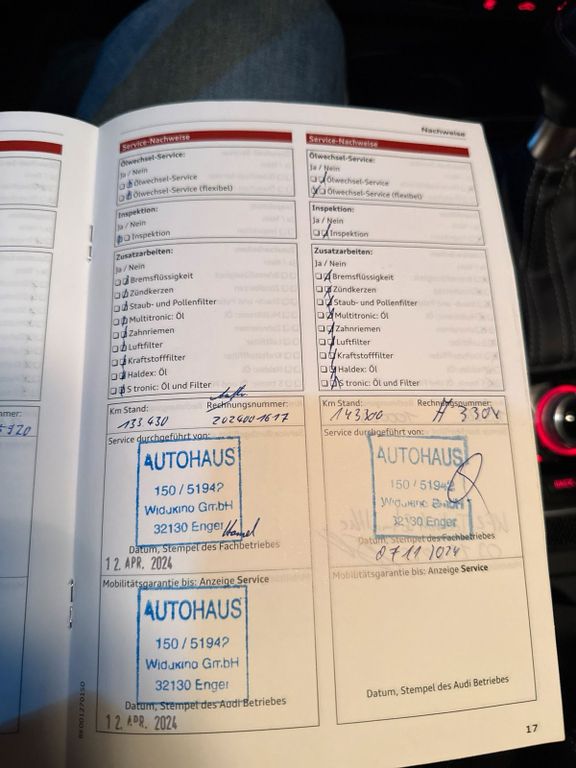 Nachweise
Service-Nachweise
Ölwechsel-Service:
Ja / Nein
Ölwechsel-Service
Ölwechsel-Service (flexibel)
Inspektion:
Ja / Nein
Inspektion
Zusatzarbeiten:
Ja / Nein
Bremsflüssigkeit
Zündkerzen
Staub- und Pollenfilter
Multitronic: Öl
Zahnriemen
Luftfilter
Kraftstofffilter
Haldex: Öl
S tronic: Öl und Filter
Km Stand:
Rechnungsnummer:
133 430
2024001617
Service durchgeführt von:
AUTOHAUS
150 / 51942
Widukind GmbH
32130 Enger
Datum, Stempel des Fachbetriebes
12. APR. 2024
Mobilitätsgarantie bis: Anzeige Service
AUTOHAUS
150 / 51942
Widukind GmbH
32130 Enger
Datum, Stempel des Audi Betriebes
12. APR. 2024
Service-Nachweise
Ölwechsel-Service:
Ja / Nein
Ölwechsel-Service
Ölwechsel-Service (flexibel)
Inspektion:
Ja / Nein
Inspektion
Zusatzarbeiten:
Ja / Nein
Bremsflüssigkeit
Zündkerzen
Staub- und Pollenfilter
Multitronic: Öl
Zahnriemen
Luftfilter
Kraftstofffilter
Haldex: Öl
S tronic: Öl und Filter
Km Stand:
Rechnungsnummer:
143300
Service durchgeführt von:
AUTOHAUS
150 / 51942
Widukind GmbH
32130 Enger
Datum, Stempel des Fachbetriebes
Mobilitätsgarantie bis: Anzeige Service
Datum, Stempel des Audi Betriebes
17